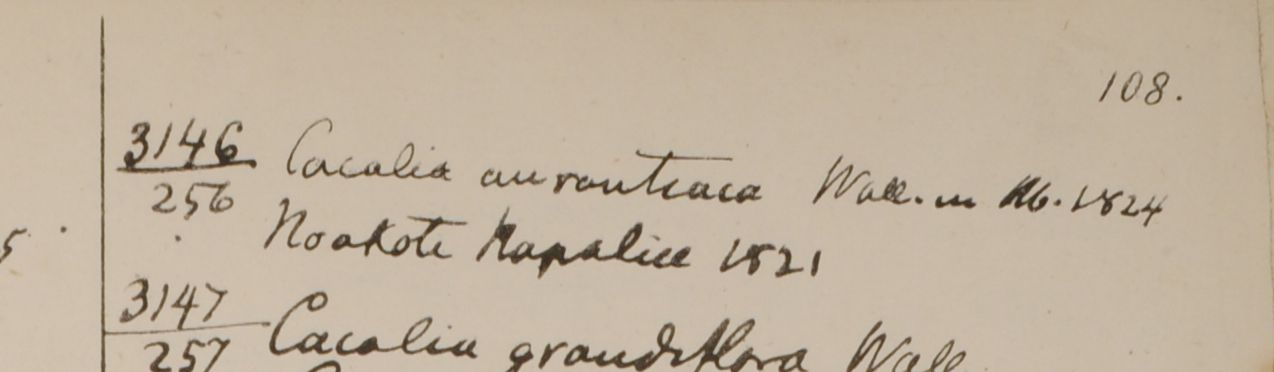 108.
3146 Cacalia aurantiaca Wall. in Hb. 1824
256 Noakote Napaliae 1821
3147
257 Cacalia grandiflora Wall
5